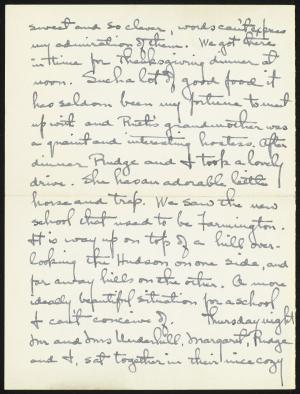 sweet and so clever, words can't express
my admiration of them. We got here
in time for Thanksgiving dinner at
noon. Such a lot of good food it
has seldom been my fortune to meet
up with and Ruth's grandmother was
a quaint and interesting hostess. After
dinner Pudge and I took a lovely
drive. She has an adorable little
horse and trap. We saw the new
school that used to be Farmington.
It is way up on top of a hill over-
looking the Hudson on one side, and
far away hills on the other. A more
ideally beautiful situation for a school
I can't conceive of. Thursday night
Mr and Mrs Underhill, Margaret, Pudge
and I, sat together in their nice cozy